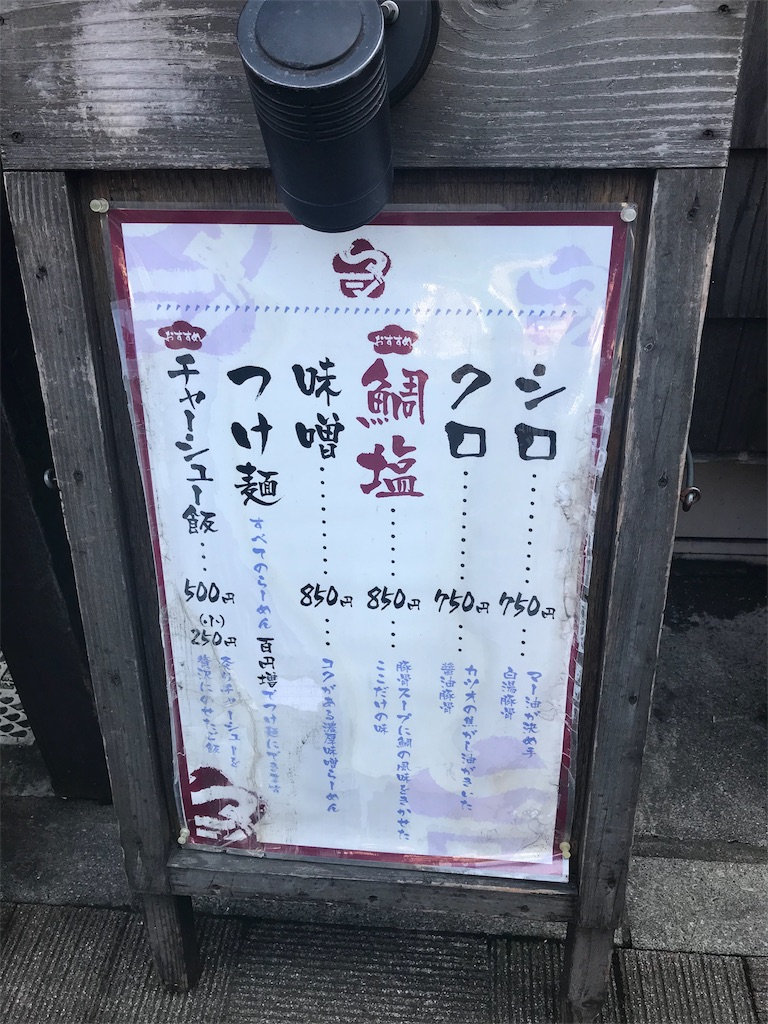 シロ……750円…マー油が決め手
白湯豚骨
クロ……750円…カツオの焦がし油がきいた
醤油豚骨
おすすめ
鯛塩……850円…豚骨スープに鯛の風味をきかせた
ここだけの味
味噌……850円…コクがある濃厚味噌らーめん
つけ麺 すべてのらーめん 百円増でつけ麺にできます
おすすめ
チャーシュー飯…500円
(小)
250円
炙りチャーシューを
贅沢にのせたご飯